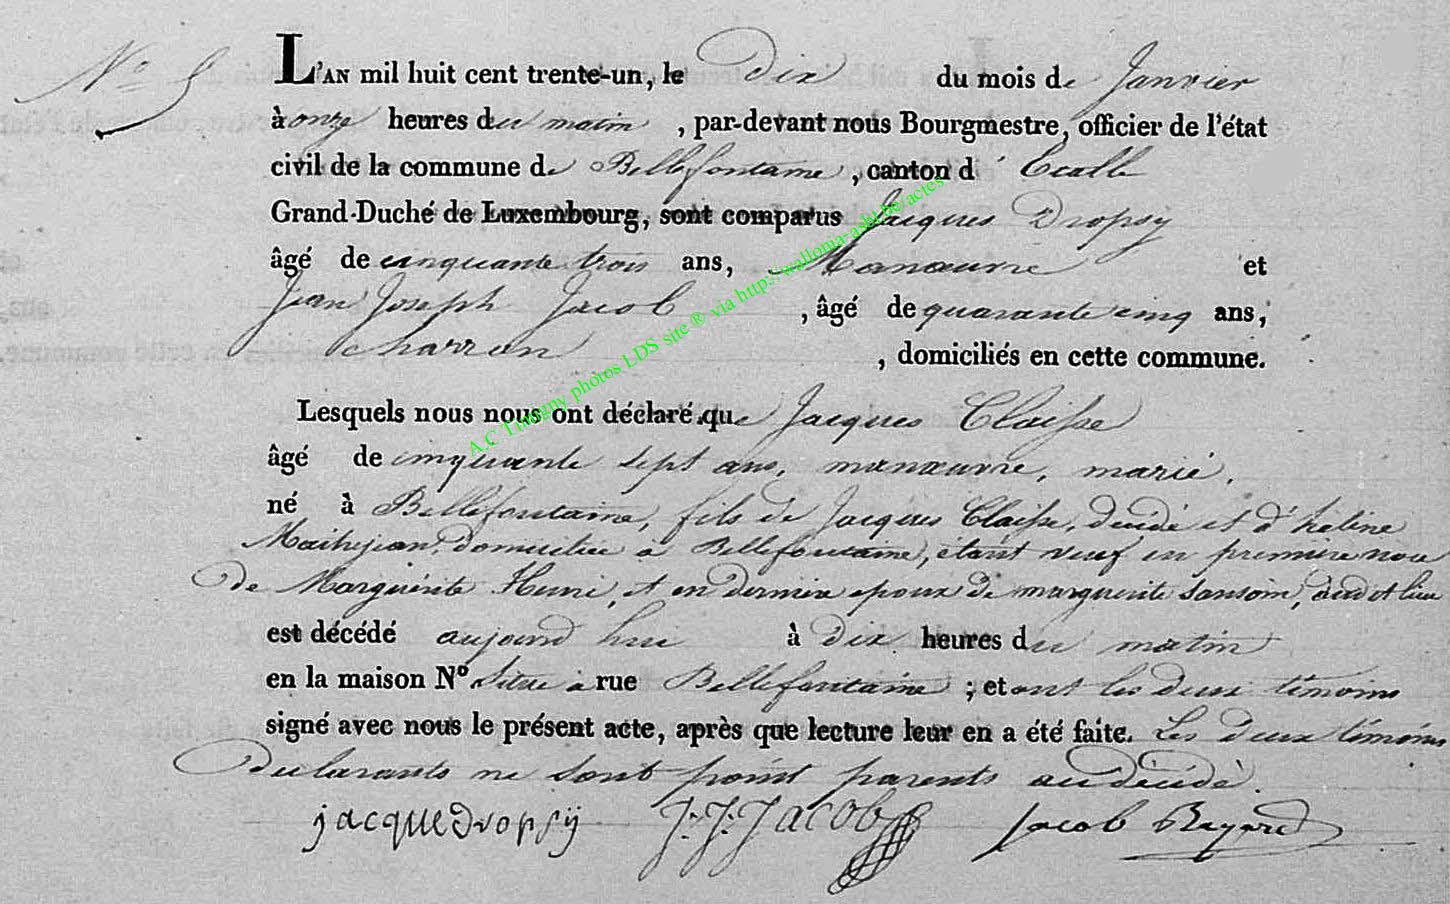 N.o 5
L'AN mil huit cent trente-un, le dix du mois de Janvier
à onze heures du matin, par-devant nous Bourgmestre, officier de l'état
civil de la commune de Bellefontaine, canton d'Etalle
Grand-Duché de Luxembourg, sont comparus Jacques Dropsy
âgé de cinquante trois ans, Manœuvre et
Jean Joseph Jacob, âgé de quarante cinq ans,
charron, domiciliés en cette commune.
Lesquels nous nous ont déclaré que Jacques Claisse
âgé de cinquante sept ans, manœuvre, marié,
né à Bellefontaine, fils de Jacques Claisse, décédé et d'hélène
domiciliée à Bellefontaine, étant veuf en premiere noce
de Marguérite Henri, et en dernier epoux de marguerite Sansoin, dud et lieu
est décédé aujourd hui à dix heures du matin
en la maison N.o située à rue Bellefontaine ; et ont les deux témoins
signé avec nous le présent acte, après que lecture leur en a été faite. Les deux témoins
declarants ne sont point parents au décédé.
jacque dropsÿ J: J: JACOB Jacob Bayard
A.C Tintigny photos LDS site ® via http://wallonia-asbl.be/actes